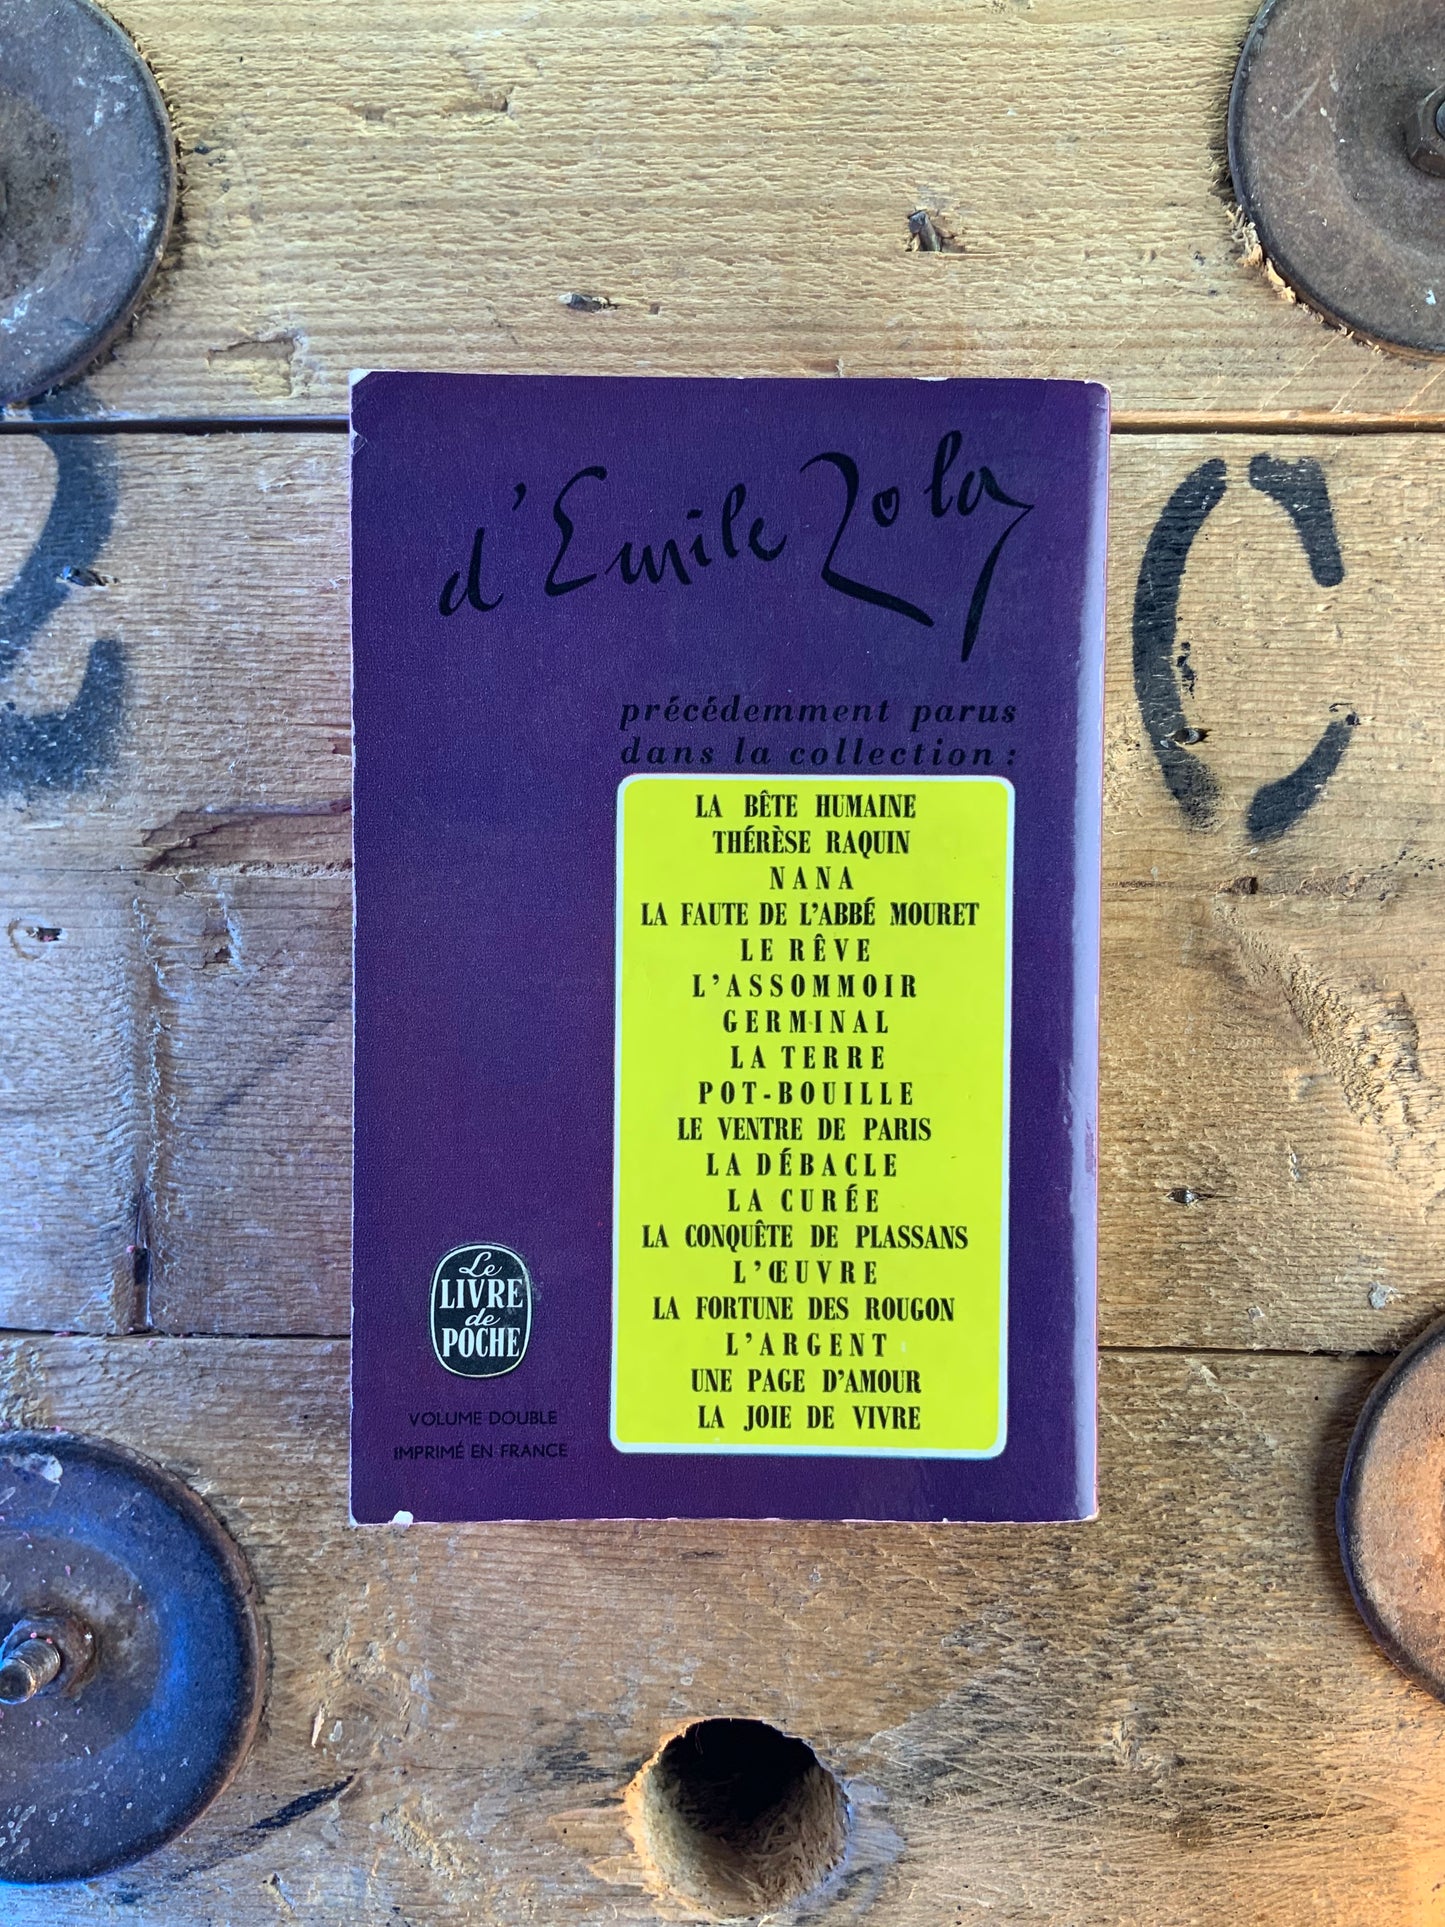 d'Emile Zola
précédemment parus
dans la collection :
LA BÊTE HUMAINE
THÉRÈSE RAQUIN
NANA
LA FAUTE DE L'ABBÉ MOURET
LE RÊVE
L'ASSOMMOIR
GERMINAL
LA TERRE
POT-BOUILLE
LE VENTRE DE PARIS
LA DÉBACLE
LA CURÉE
LA CONQUÊTE DE PLASSANS
L'ŒUVRE
LA FORTUNE DES ROUGON
L'ARGENT
UNE PAGE D'AMOUR
LA JOIE DE VIVRE
Le
LIVRE
de
POCHE
VOLUME DOUBLE
IMPRIMÉ EN FRANCE
C